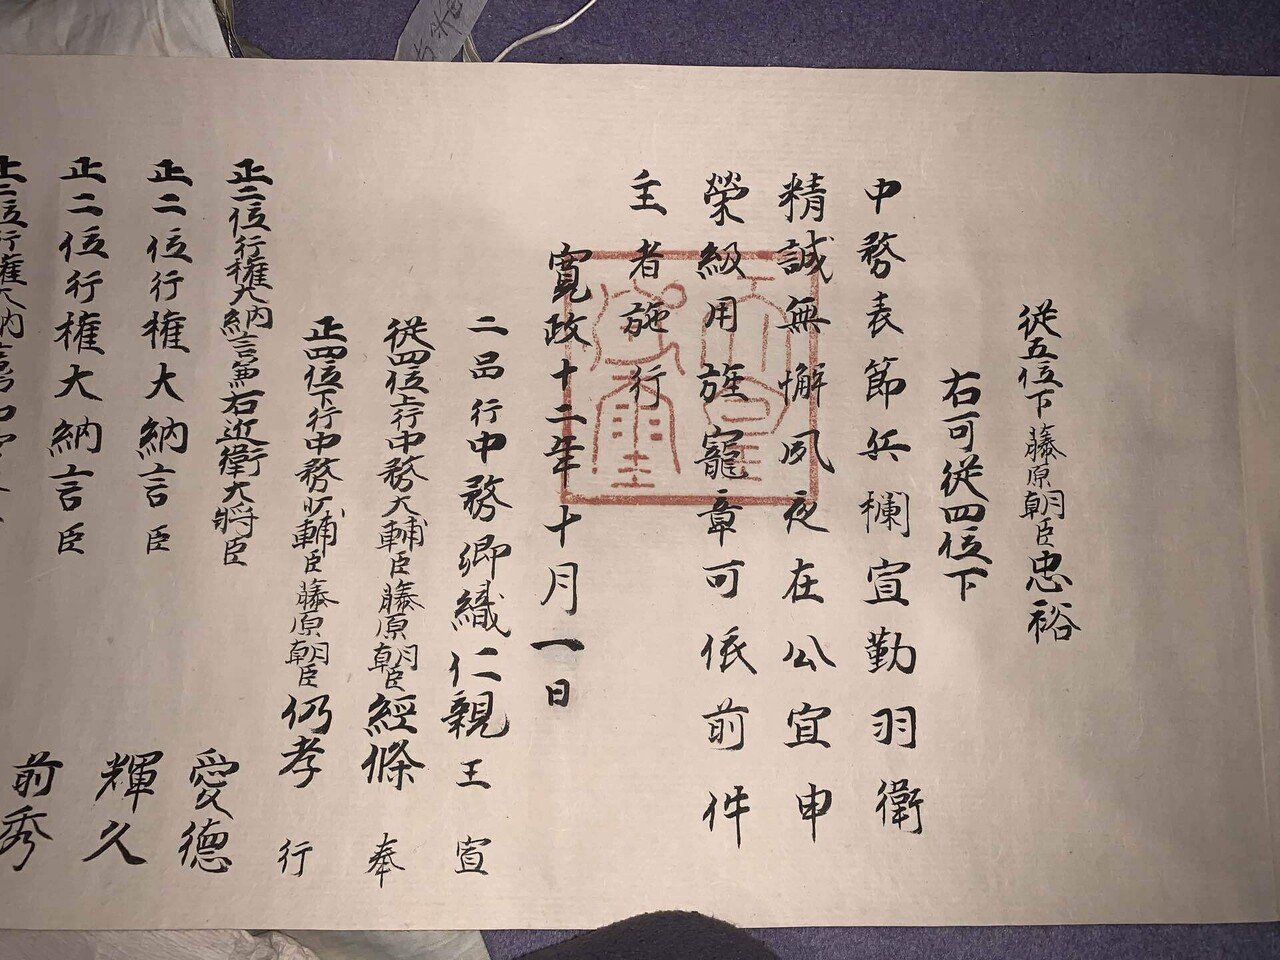 従五位下藤原朝臣忠裕
右可従四位下
中務表節兵欄宣勤羽衛
精誠無懈夙夜在公宜申
榮級用旌寵章可依前件
主者施行
寛政十二年十月一日
二品行中務卿織仁親王宣
従四位上行中務大輔臣藤原朝臣經條奉
正四位下行中務少輔臣藤原朝臣仍孝行
正二位行權大納言兼右近衛大將臣愛德
正二位行權大納言臣輝久
正二位行權大納言臣前秀
正二位行權大納言
天皇御璽